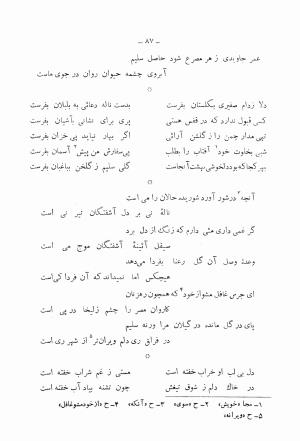 ـ ۸۷ ـ
عمر جاویدی ز هر مصرع شود حاصل سلیم
آبروی چشمه حیوان روان در جوی ماست
دلا زدام صفیری بگلستان بفرست
بدست ناله دعائی به بلبلان بفرست
کسی قبول ندارد که در قفس هستی
پری برای نشانی بآشیان بفرست
تهی مدار چمن را ز گلخن آرائی
اگر بهار نیاید پی خزان بفرست
شبی بخلوت خود۱ آفتاب را بطلب
پی سفارش من پیش۲ آسمان بفرست
بهر کجا که بود دلخوشی بهشت آنجاست
گلی سلیم ز گلخن بباغبان بفرست
آنچه۳ در شور آورد شوریده حالان را می است
نالهٔ نی بر دل آشفتگان تیر نی است
گر غمی داری مئی دارم که زنگ از دل برد
صیقل آئینهٔ آشفتگان موج می است
وعدهٔ وصل آن گل رعنا بفردا می‌دهد
هیچکس اما نمیداند که آن فردا کی است
ای جرس غافل مشو از خود۴ که همچون رهزنان
کاروان مصر را چشم زلیخا در پی است
پای در گل مانده در گیلان مرا ورنه سلیم
در فراق ری دلم ویران‌تر۵ از شهر ری است
دل بی لب او خراب خفته است
مستی ز غم شراب خفته است
در خاک دلم ز شوق تیغش
چون تشنه بیاد آب خفته است
۱ـ مجا «خویش» ۲ـ ح «سوی» ۳ـ ح «آنکه» ۴ـ ح «از خود مشو غافل»
۵ـ ح «ویرانه»